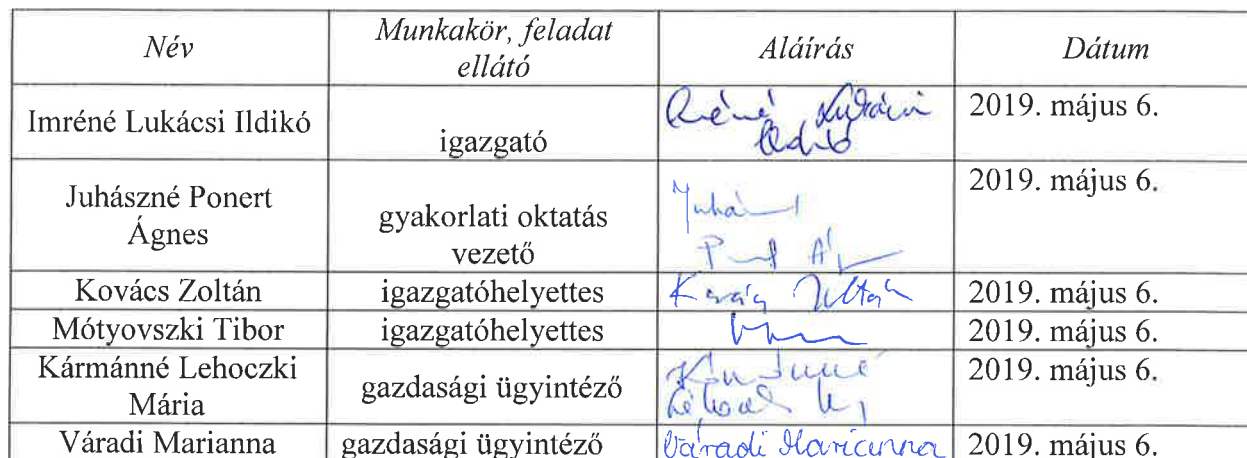 Név Munkakör, feladat ellátó Aláírás Dátum
Imréné Lukácsi Ildikó igazgató 2019. május 6.
Juhászné Ponert Ágnes gyakorlati oktatás vezető 2019. május 6.
Kovács Zoltán igazgatóhelyettes Kovács Zoltán 2019. május 6.
Mótyovszki Tibor igazgatóhelyettes 2019. május 6.
Kármánné Lehoczki Mária gazdasági ügyintéző 2019. május 6.
Váradi Marianna gazdasági ügyintéző Váradi Marianna 2019. május 6.